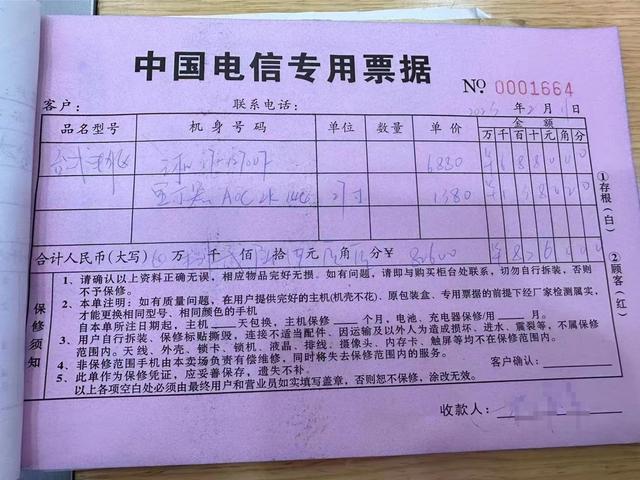 中国电信专用票据
№ 0001664
客户： 联系电话： 年 2 月 日
品名型号 机身号码 单位 数量 单价 金额
万 千 百 十 元 角 分
台式主机 6880 6 8 8 0 0 0
显示器 AOC 2K 27寸 1380 1 3 8 0 0 0
合计人民币(大写) 万 千 佰 拾 元 角 分 ¥ 8260
①存根（白）
②顾客（红）
保修须知
1、请确认以上资料正确无误，相应物品完好无损。如有问题，请即与购买柜台处联系，切勿自行拆装，否则
不予保修。
2、本单注明：如有质量问题，在用户提供完好的主机(机壳不花)、原包装盒、专用票据的前提下经厂家检测属实，
才能更换相同型号、相同颜色的手机
自本单所注日期起，主机 天包换，主机保修 个月，电池、充电器保修/用 月。
3、用户自行拆装、保修标贴撕毁，连接不适当配件、因运输及以外人为造成损坏、进水、震裂等，不属保修
范围内。天线、外壳、锁卡、锁机、液晶、排线、摄像头、内存卡、触屏等均不在保修范围内。
4、非保修范围手机由本卖场负责有偿维修，同时将失去保修范围内的服务。
5、此单作为保修凭证，应妥善保存，遗失不补。 客户确认：
以上各项空白处必须由最终用户和营业员如实填写盖章，否则恕不保修，涂改无效。
收款人：